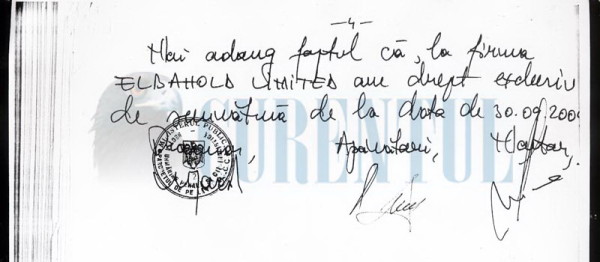 -4-
Mai adaug faptul că, la firma
ELBAHOLD LIMITED am drept exclusiv
de semnătură de la data de 30.09.200
Procuror, Apărători, Martor,
CURENTUL
MINISTERUL PUBLIC